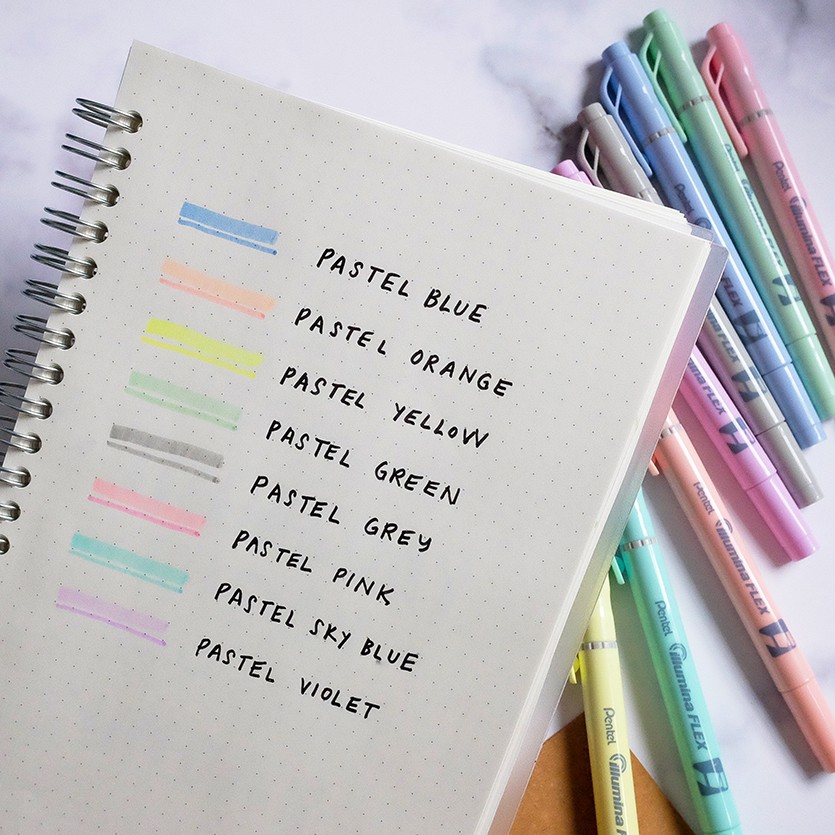 PASTEL BLUE
PASTEL ORANGE
PASTEL YELLOW
PASTEL GREEN
PASTEL GREY
PASTEL PINK
PASTEL SKY BLUE
PASTEL VIOLET
Pentel illumina FLEX
Pentel
Pentel
FLEX
illumina FLEX
illumina FLEX
Pentel illumina FLEX
Pentel illumina FLEX
Pentel illumina